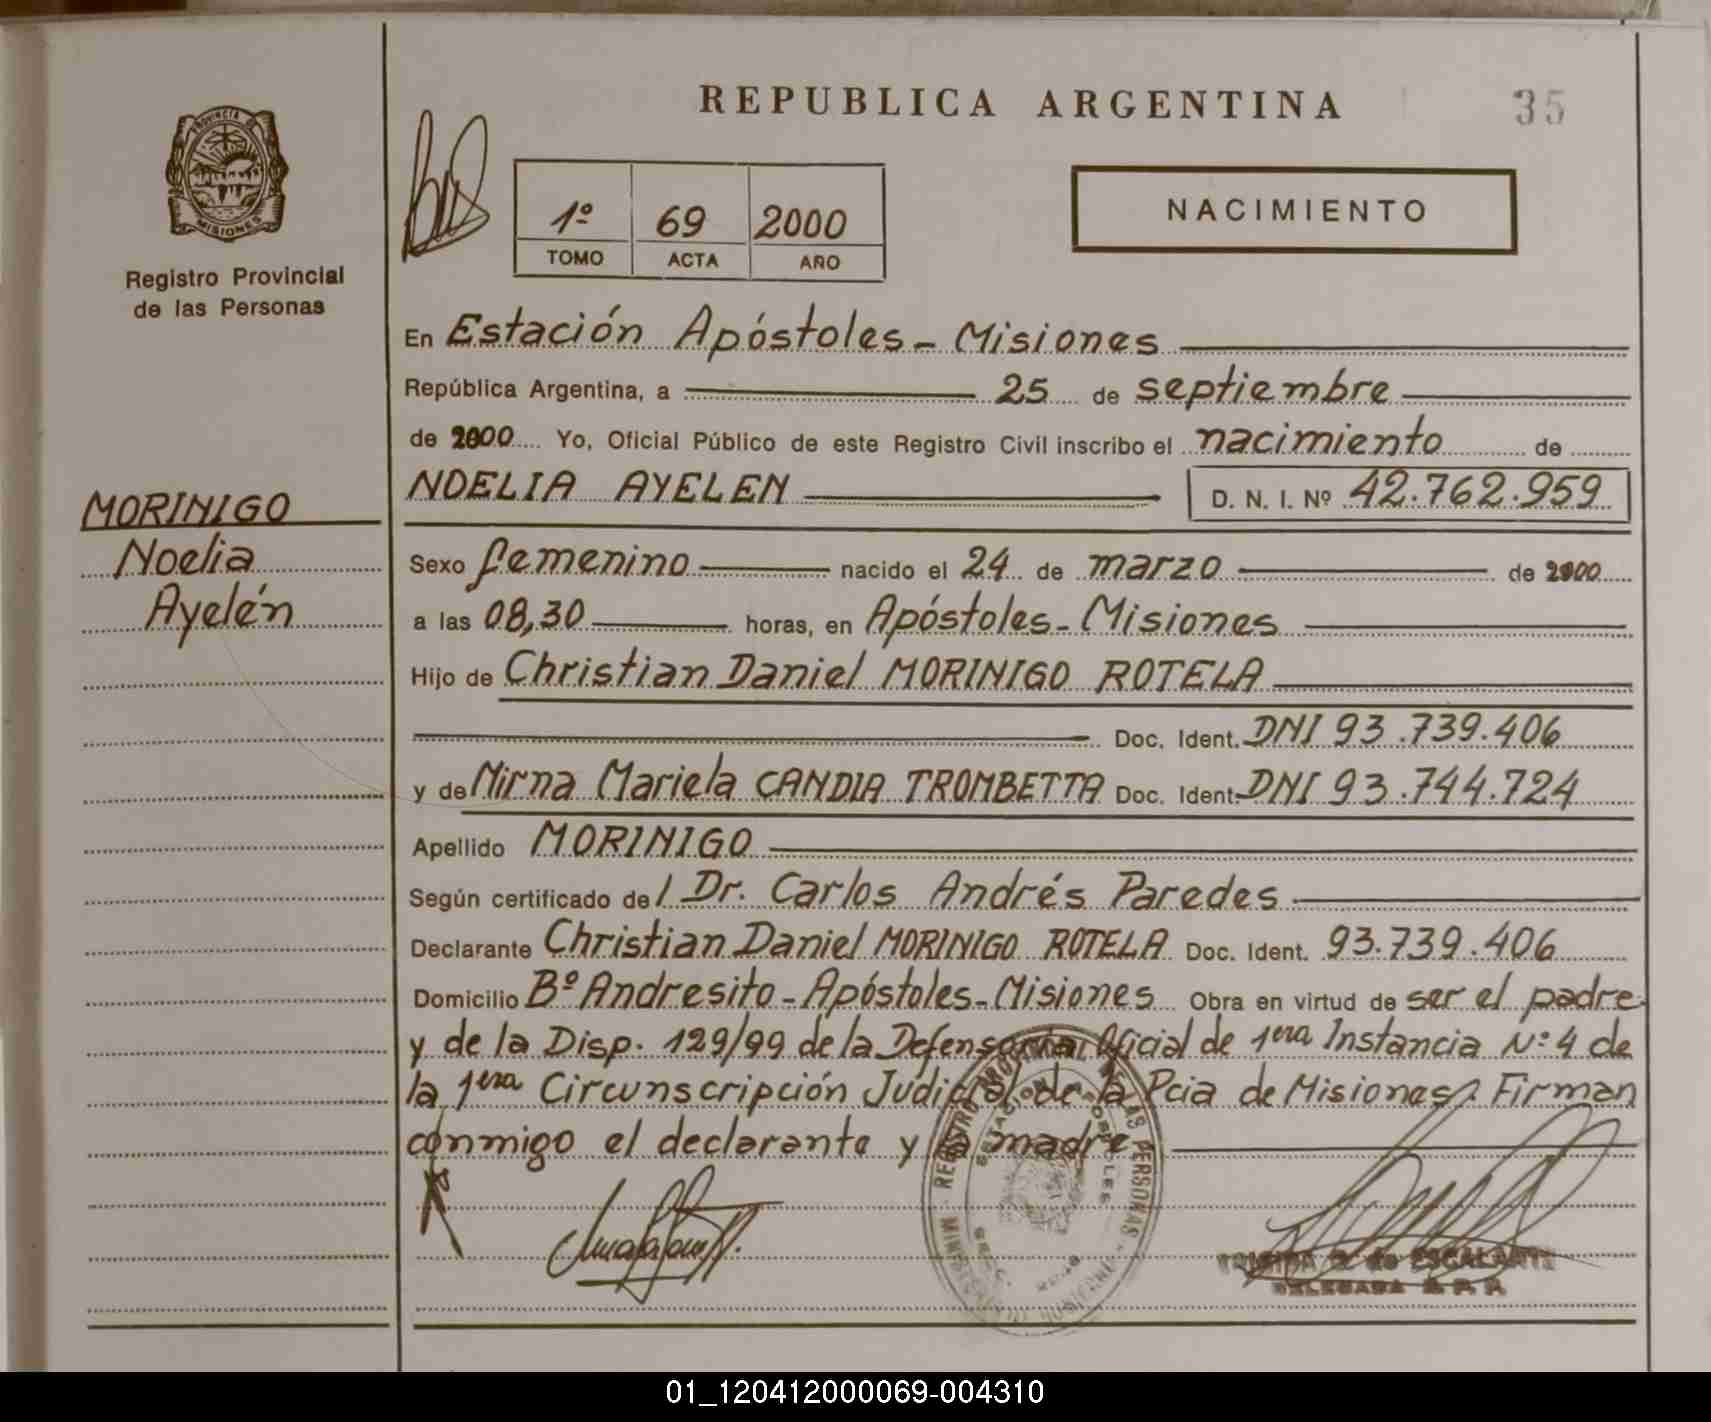 REPUBLICA ARGENTINA
35
PROVINCIA DE
MISIONES
Registro Provincial
de las Personas
1º 69 2000
TOMO ACTA AÑO
NACIMIENTO
En Estación Apóstoles - Misiones
República Argentina, a 25 de septiembre
de 2000 Yo, Oficial Público de este Registro Civil inscribo el nacimiento de
NOELIA AYELEN D. N. I. Nº 42.762.959
MORINIGO
Noelia
Ayelén
Sexo femenino nacido el 24 de marzo de 2000
a las 08,30 horas, en Apóstoles - Misiones
Hijo de Christian Daniel MORINIGO ROTELA
Doc. Ident. DNI 93.739.406
y de Mirna Mariela CANDIA TROMBETTA Doc. Ident. DNI 93.744.724
Apellido MORINIGO
Según certificado del Dr. Carlos Andrés Paredes
Declarante Christian Daniel MORINIGO ROTELA Doc. Ident. 93.739.406
Domicilio Bº Andresito - Apóstoles - Misiones Obra en virtud de ser el padre
y de la Disp. 129/99 de la Defensoría Oficial de 1era Instancia Nº 4 de
la 1era Circunscripción Judicial de la Pcia de Misiones. Firman
conmigo el declarante y la madre
REGISTRO PROVINCIAL DE LAS PERSONAS
ESTACION APOSTOLES
de ESCALANTE
DELEGADA R. P. P.
01_120412000069-004310